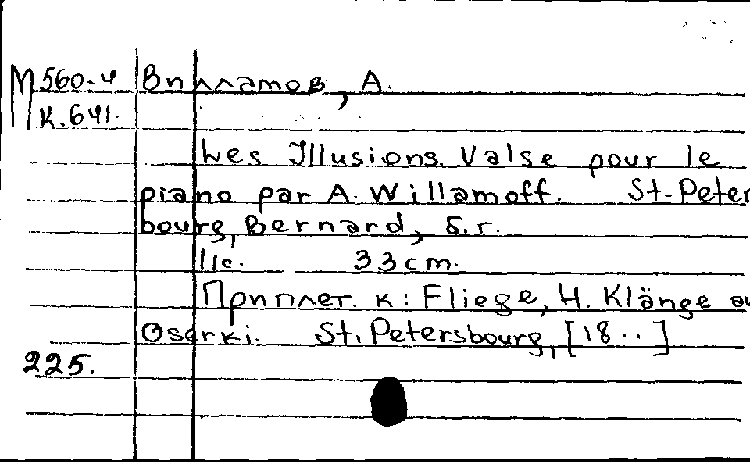 М 560-4 Вилламов, А.
К.641.
Les Illusions. Valse pour le
piano par A. Willamoff. St-Peters
bourg, Bernard, б.г.
11с. 33cm.
Приплет. к: Fliege, H. Klänge au
Oserki. St. Petersbourg, [18..]
225.